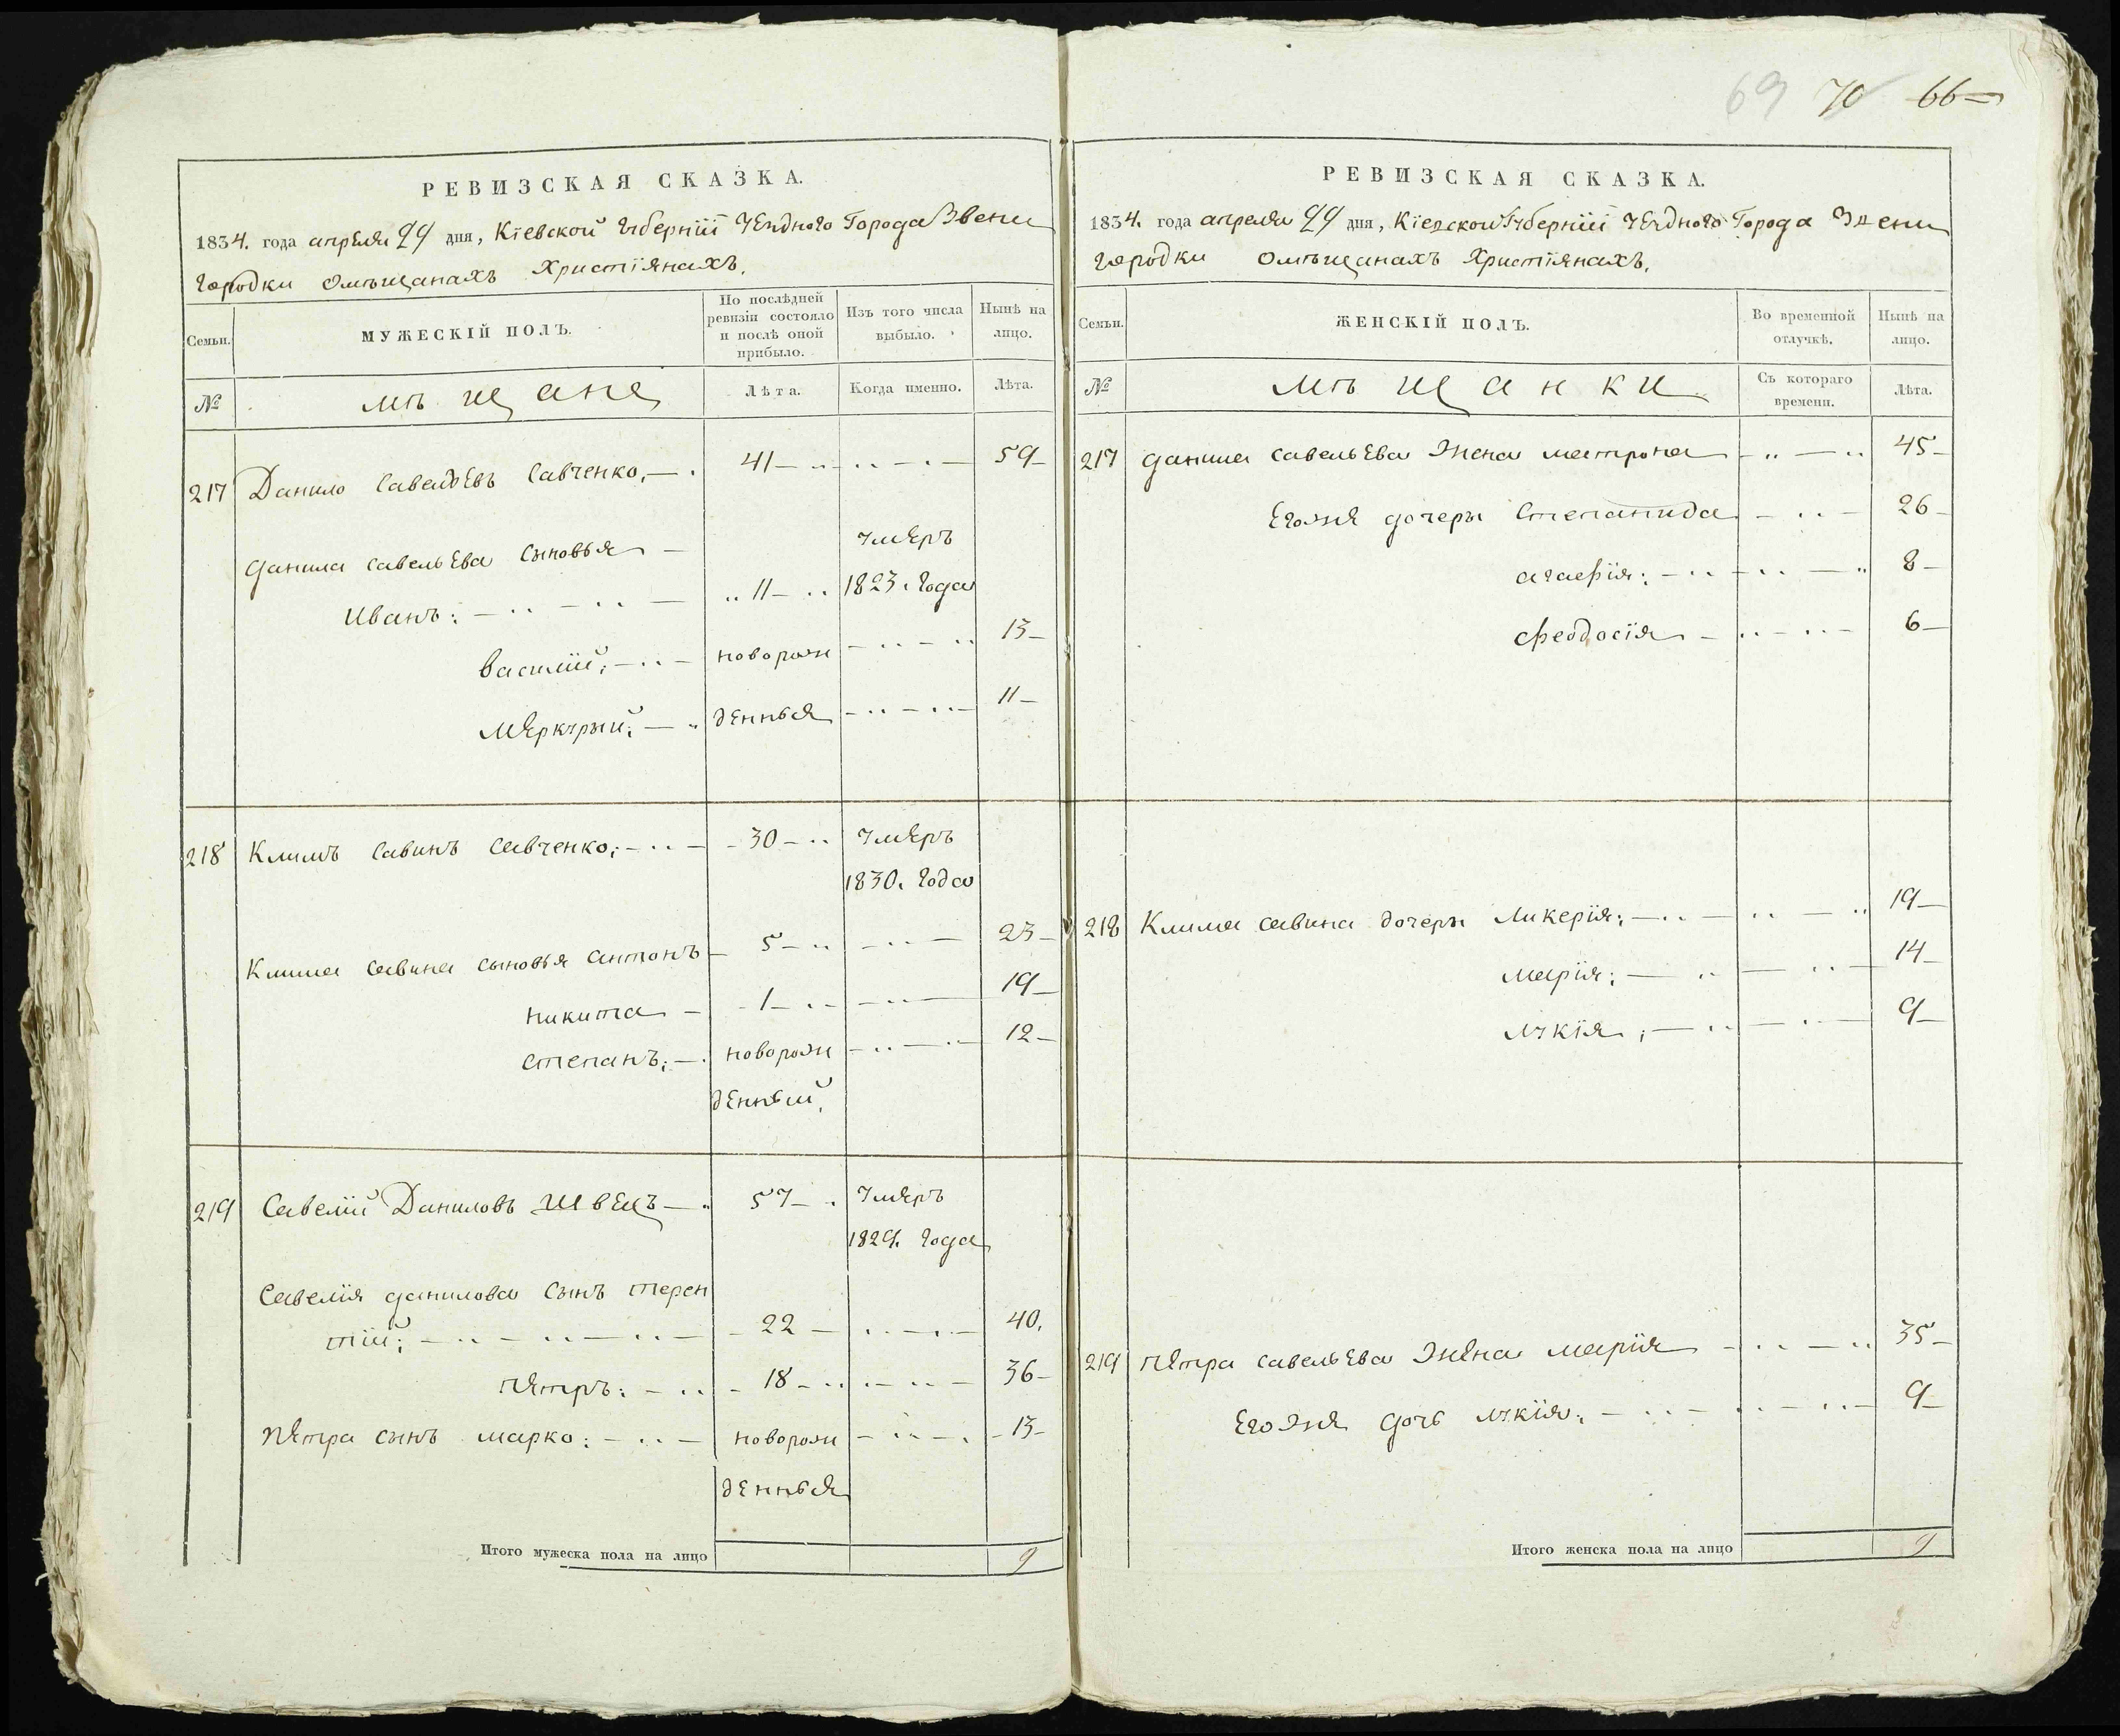 69 70 66
РЕВИЗСКАЯ СКАЗКА.
1834. года апреля 29 дня, Кіевской Губерніи Уездного Города Звени
городки омѣщанахъ Христіянахъ.
Семьи. МУЖЕСКІЙ ПОЛЪ. По послѣдней ревизіи состояло и послѣ оной прибыло. Изъ того числа выбыло. Нынѣ на лицо.
№ мѣщане Лѣта. Когда именно. Лѣта.
217 Данило Савельевъ Савченко, 41 59
Данила Савельева Сыновья умеръ
Иванъ: 11 1823. года
Василій: новорож 13
Меркурий: денныя 11
218 Климъ Савинъ Савченко: 30 умеръ
1830. года
Клима Савина сыновья Антонъ 5 23
Никита 1 19
Степанъ: новорож 12
денный,
219 Савелій Даниловъ Швецъ 57 умеръ
1829. года
Савелія Данилова Сынъ Терен
тій: 22 40.
Петръ: 18 36
Петра сынъ Марко: новорож 13
денныя
Итого мужеска пола на лицо 9
РЕВИЗСКАЯ СКАЗКА.
1834. года апреля 29 дня, Кіевской Губерніи Уездного Города Звени
городки омѣщанахъ Христіянахъ.
Семьи. ЖЕНСКІЙ ПОЛЪ. Во временной отлучкѣ. Нынѣ на лицо.
№ мѣщанки Съ котораго времени. Лѣта.
217 Данила Савельева Жена Матрона 45
Егожя дочеры Степанида 26
Агафія: 8
Феодосія 6
218 Клима Савина дочеры Ликерія: 19
Марія: 14
Лукія: 9
219 Петра Савельева Жена Марія 35
Егожя дочь Лукія: 9
Итого женска пола на лицо 9